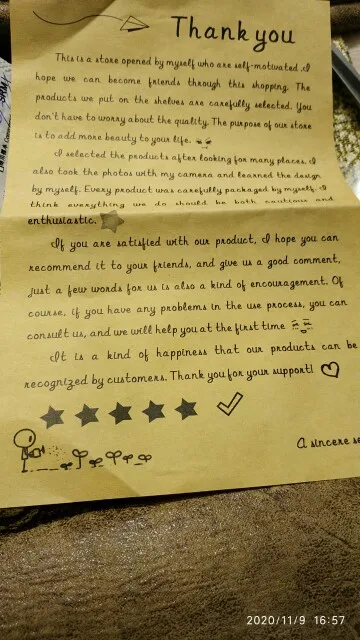 Thank you
This is a store opened by myself who are self-motivated .I
hope we can become friends through this shopping. The
products we put on the shelves are carefully selected. You
don't have to worry about the quality. The purpose of our store
is to add more beauty to your life.
I selected the products after looking for many places. I
also took the photos with my camera and learned the design
by myself. Every product was carefully packaged by myself. I
think everything we do should be both cautious and
enthusiastic.
If you are satisfied with our product, I hope you can
recommend it to your friends, and give us a good comment,
just a few words for us is also a kind of encouragement. Of
course, if you have any problems in the use process, you can
consult us, and we will help you at the first time
It is a kind of happiness that our products can be
recognized by customers. Thank you for your support!
A sincere
2020/11/9 16:57